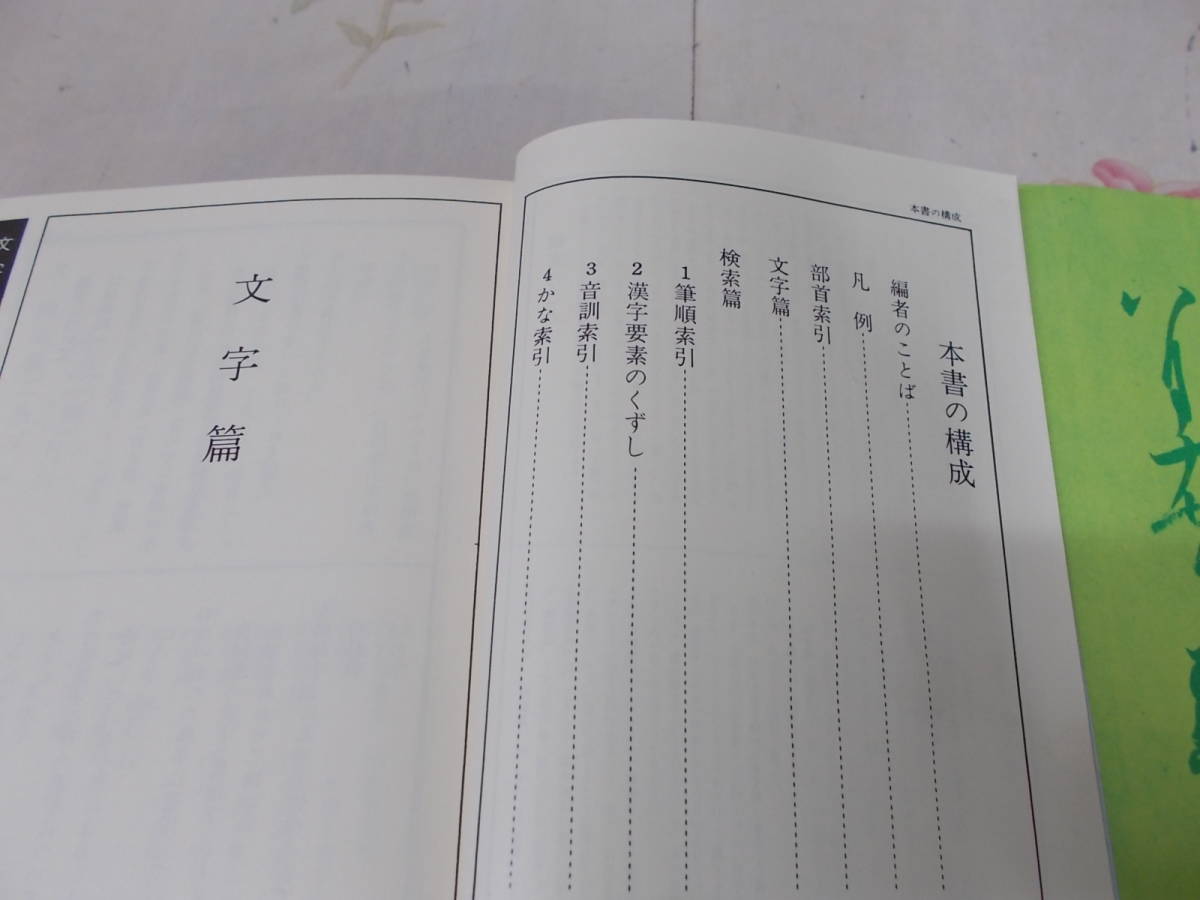 本書の構成
本書の構成
編者のことば
凡例
部首索引
文字篇
検索篇
1 筆順索引
2 漢字要素のくずし
3 音訓索引
4 かな索引
文字篇